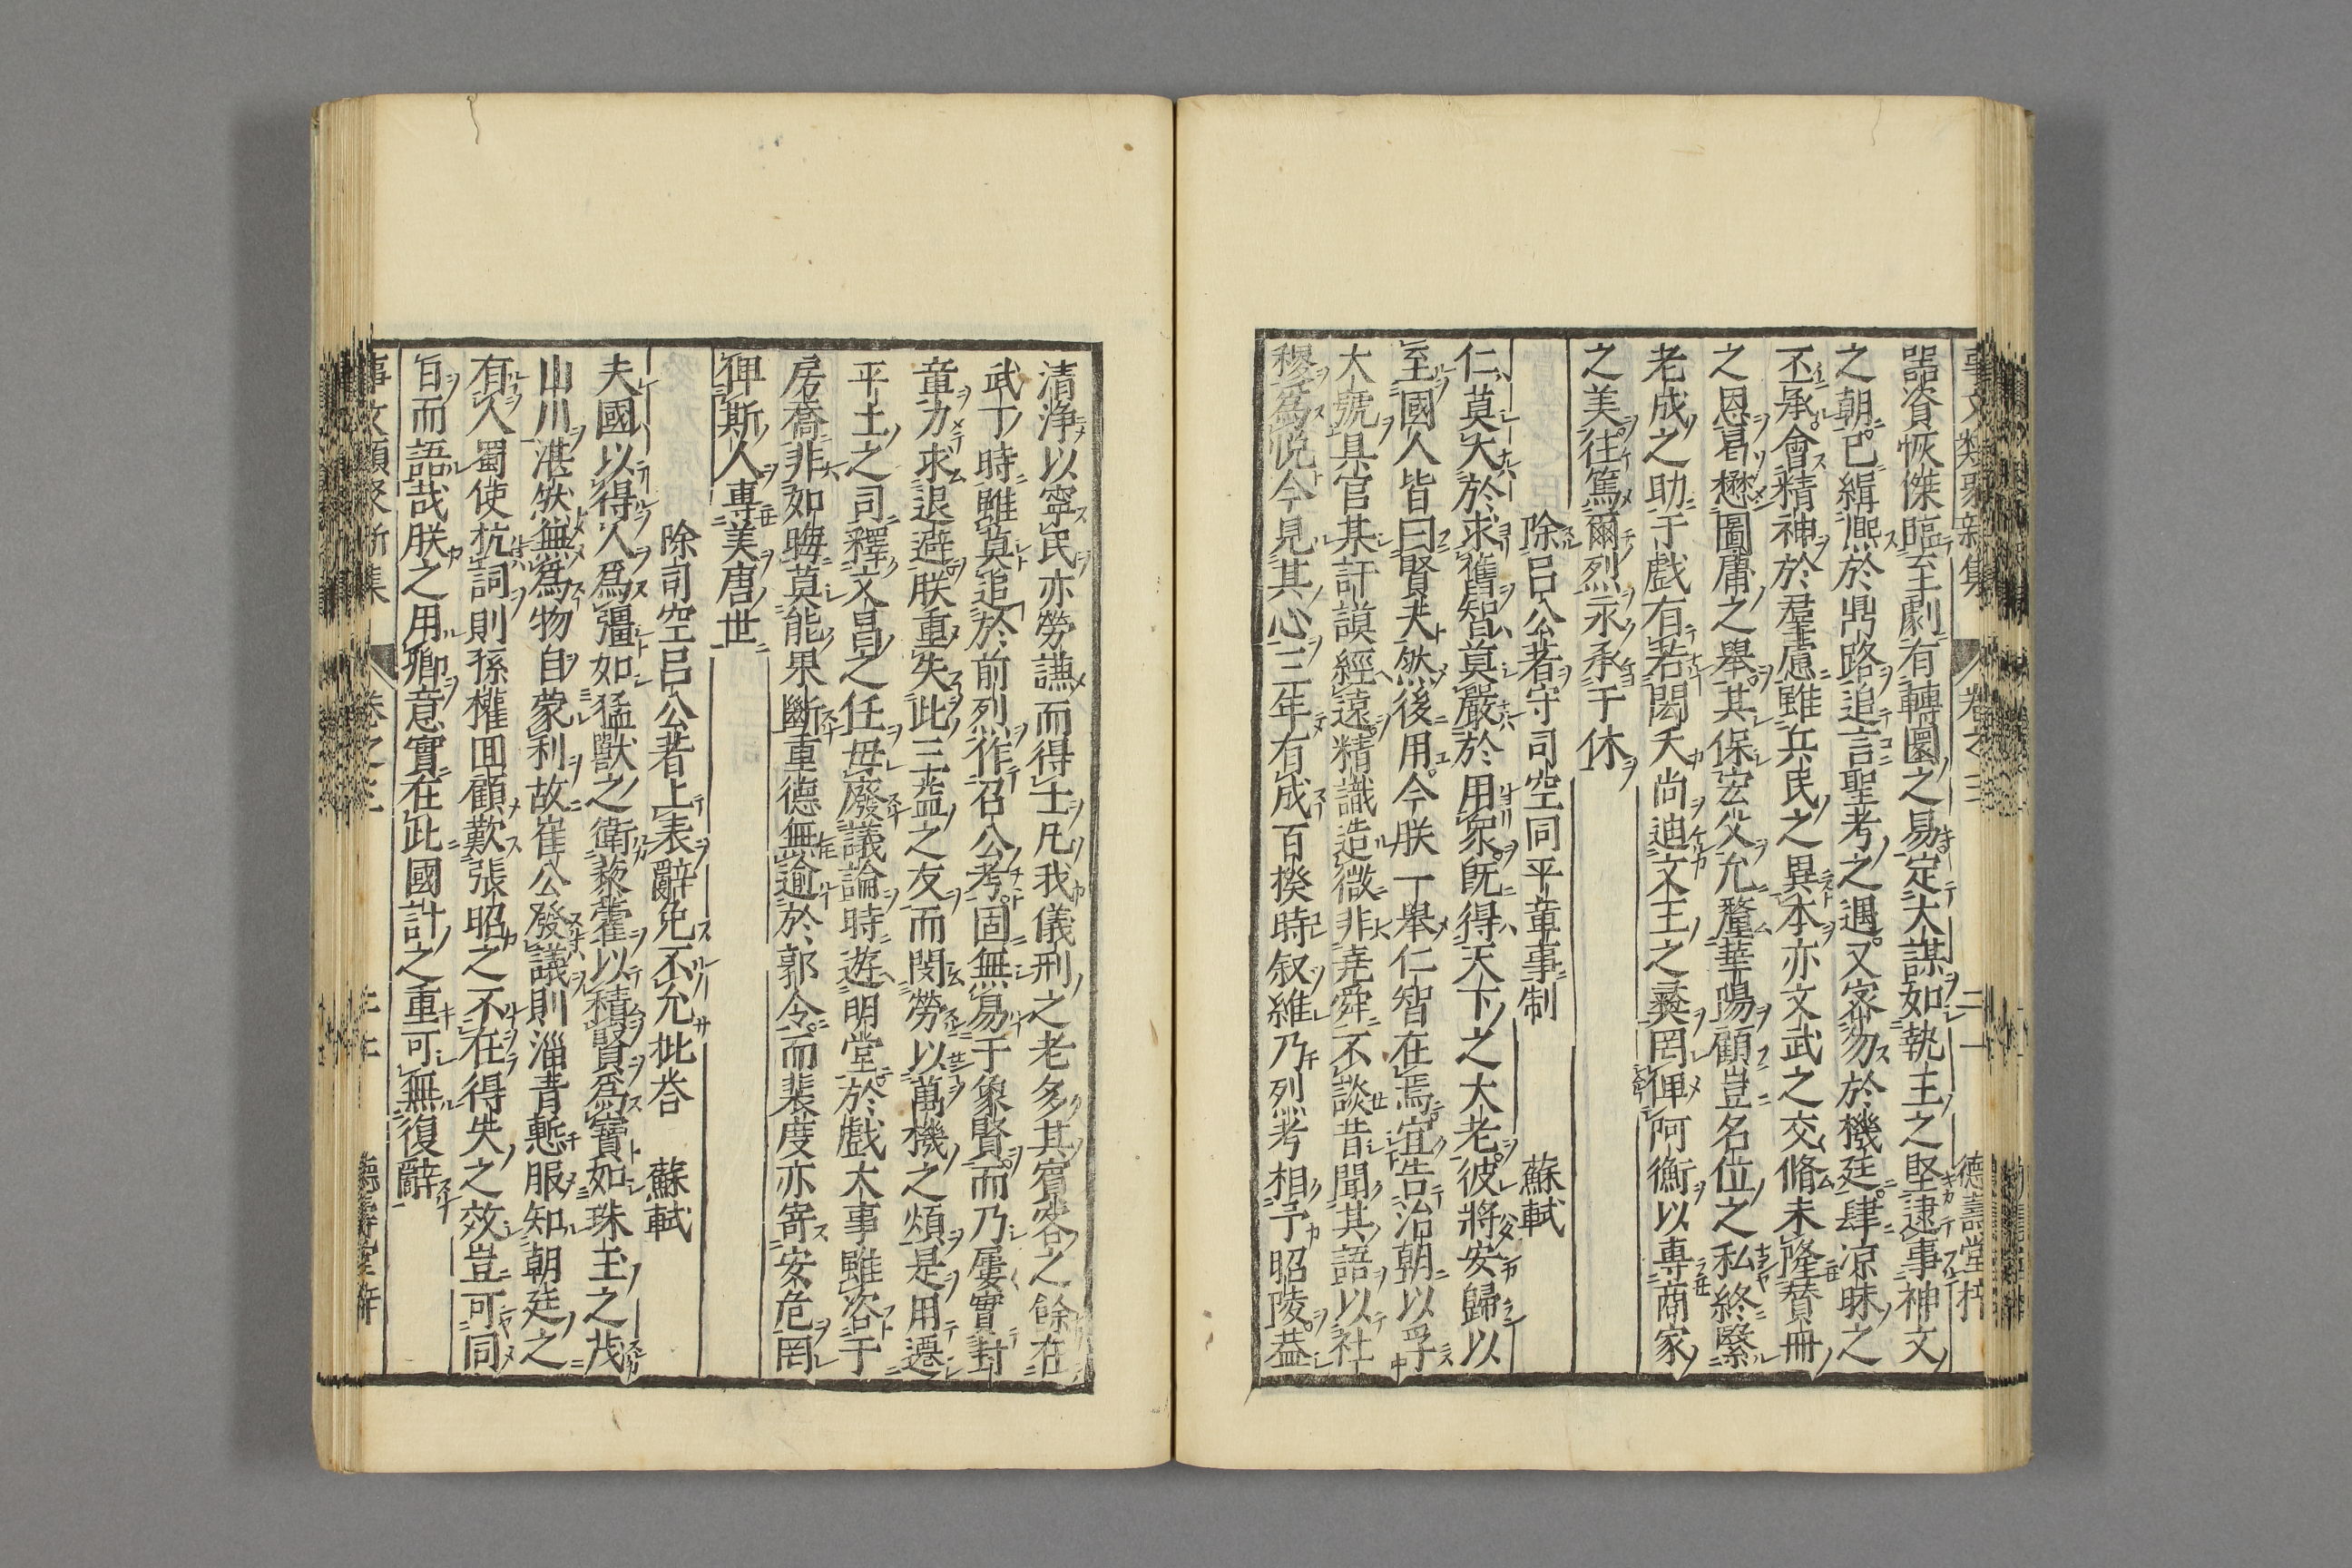 事文類聚新集 卷之三 二一 德壽堂梓
噐資恢傑臨至劇有轉圜之易定大謀如執玉之堅逮事神文
之朝已緝熈於鼎路追言聖考之遇又宻勿於機廷肆凉昧之
丕承會精神於羣慮雖兵民之異本亦文武之交脩未隆賛冊
之恩曷懋圖庸之舉其保宏父允釐華陽顧豈名位之私終緊
老成之助于戱有若閎夭尚迪文王之彞罔俾阿衡以專商家
之美徃篤爾烈永承于休
除吕公著守司空同平章事制 蘇軾
仁莫大於求舊智莫嚴於用衆旣得天下之大老彼將安歸以
至國人皆曰賢夫然後用今朕一舉仁智在焉宜告治朝以孚
大號具官某訏謨經遠精識造微非堯舜不談昔聞其語以社
稷爲悦今見其心三年有成百揆時叙維乃烈考相予昭陵葢
清净以寧民亦勞謙而得士凡我儀刑之老多其賓客之餘在
武丁時雖莫追於前列作召公考固無易于象賢而乃屢貢封
章力求退避朕重失此三益之友而閔勞以萬機之煩是用遷
平土之司釋文昌之任毋廢議論時遊明堂於戱大事雖咨于
房喬非如晦莫能果斷重德無逾於郭令而裴度亦寄安危罔
俾斯人專美唐世
除司空吕公著上表辭免不允批荅 蘇軾
夫國以得人爲彊如猛獸之衛藜藿以積賢爲寳如珠玉之茂
山川湛然無爲物自蒙利故崔公發議則淄青慙服知朝廷之
有人蜀使抗詞則孫權囬顧歎張昭之不在得失之效豈可同
日而語哉朕之用卿意實在此國計之重可無復辭
事文類聚新集 卷之三 德壽堂梓